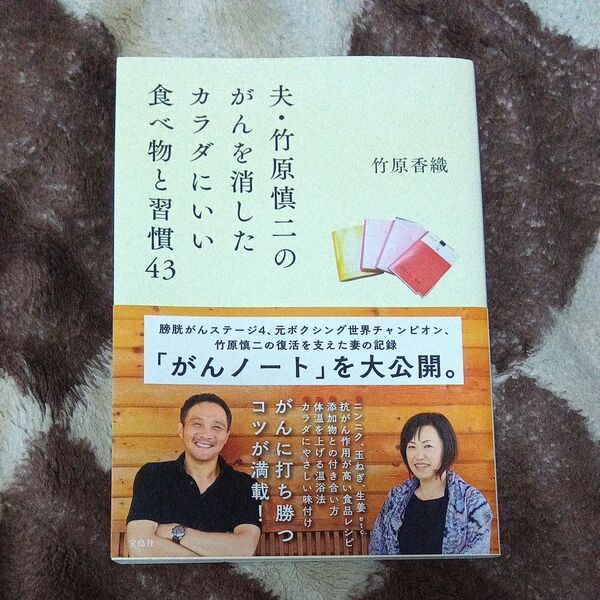 夫・竹原慎二の
がんを消した
カラダにいい
食べ物と習慣
43
竹原香織
膀胱がんステージ4、元ボクシング世界チャンピオン、
竹原慎二の復活を支えた妻の記録
「がんノート」を大公開。
ニンニク、玉ねぎ、生姜etc.
抗がん作用が高い食品レシピ
添加物との付き合い方
体温を上げる温浴法
カラダにやさしい味付け
がんに打ち勝つ
コツが満載!
宝島社